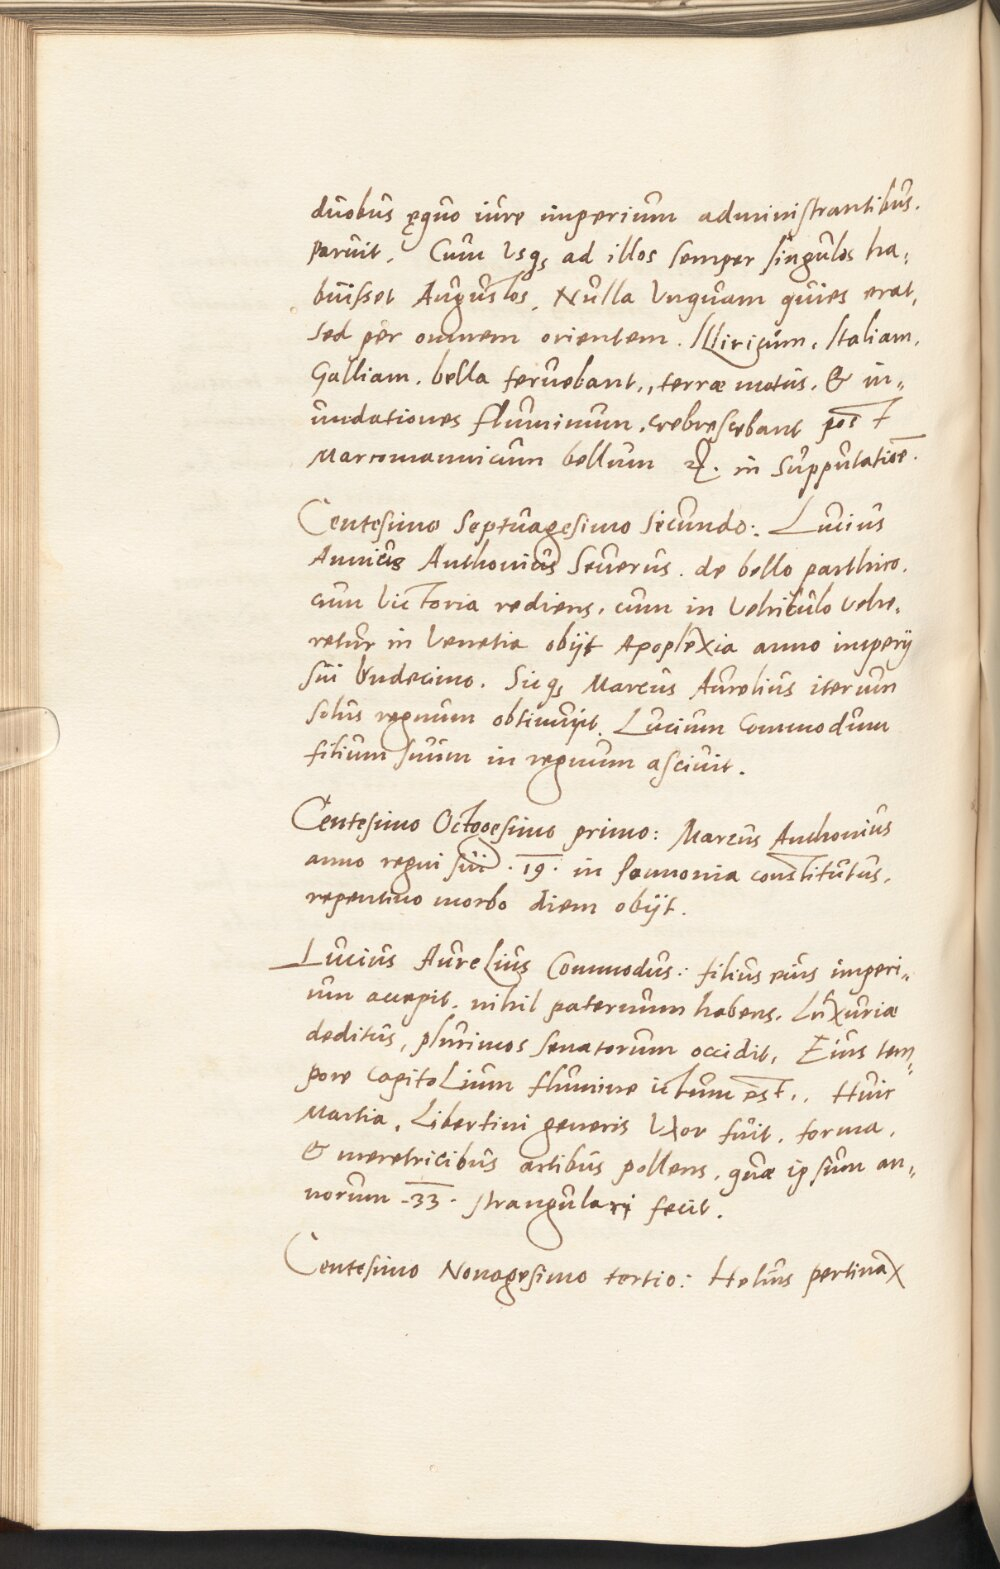 duobus ęquo iure imperium administrantibus.
paruit. Cum Usq3 ad illos semper singulos ha,
buisset Augustos. Nulla Unquam quies erat,
sed per omnem orientem. Illiricum. Italiam.
Galliam. bella feruebant,, terræ motus. & in,,
undationes fluminum, crebrescebant post
Marcomannicum bellum in supputatiōe.
Centesimo Septuagesimo secundo: Lucius
Annius Anthonius Seuerus. de bello parthico.
cum Victoria rediens, cum in Vehiculo Vehe,
retur in Venetia obijt Apoplexia anno imperij
sui Undecimo. Sicq3 Marcus Aurelius iterum
solus regnum obtinuit. Lucium Commodum
filium suum in regnum asciuit.
Centesimo Octogesimo primo: Marcus Anthonius
anno regni sui .19. in Pannonia constitutus,
repentino morbo diem obijt.
Lucius Aurelius Commodus: filius eius imperi,,
um accepit. nihil paternum habens. Luxuriæ
deditus, plurimos senatorum occidit, Eius tem,,
pore Capitolium flumine ictum est,. Huic
Martia, Libertini generis Uxor fuit, forma,
& meretricibus artibus pollens, quæ ipsum an,,
norum .33. strangulari fecit.
Centesimo Nonagesimo tertio: Helius pertinax